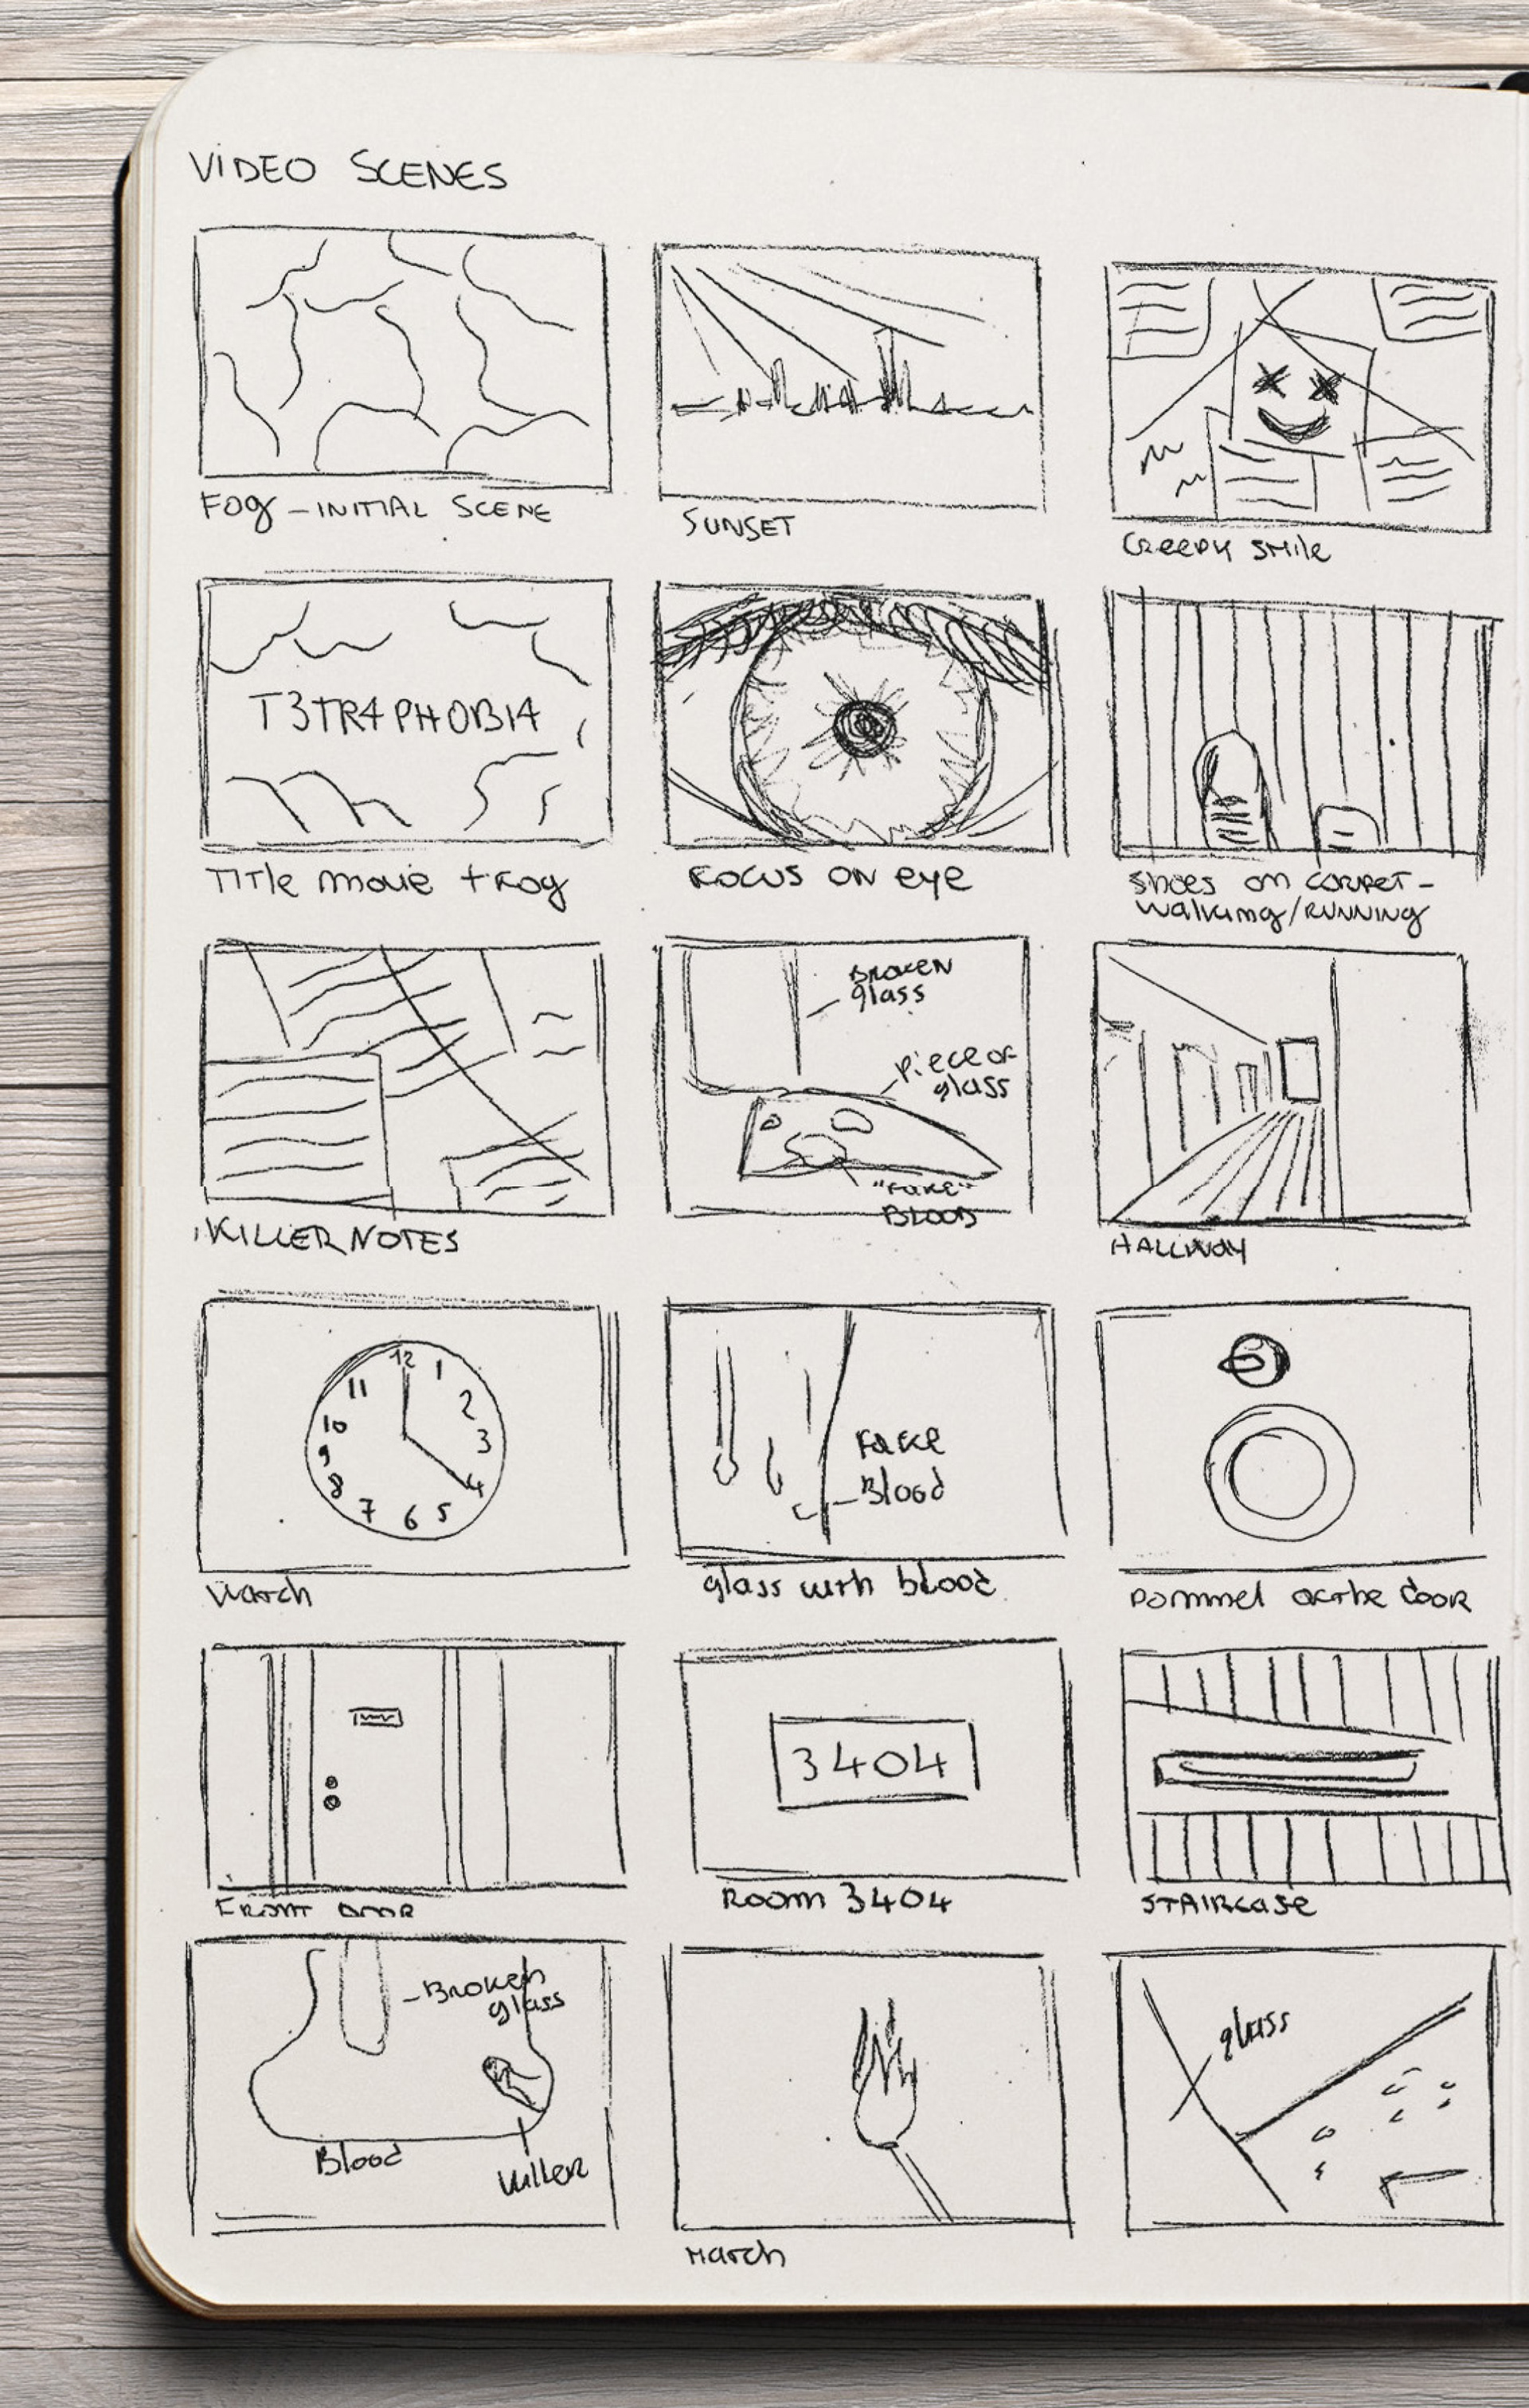 VIDEO SCENES
FOG - INITIAL SCENE
SUNSET
CREEPY SMILE
T3TR4PHOB14
TITLE MOVIE + FOG
FOCUS ON EYE
SHOES ON CORPET -
WALKING/RUNNING
KILLER NOTES
BROKEN
glass
PIECE OF
glass
"FAKE"
BLOOD
HALLWAY
12
1
2
3
4
5
6
7
8
9
10
11
WATCH
FAKE
Blood
glass with blood
pommel of the door
FRONT DOOR
3404
ROOM 3404
STAIRCASE
Broken
glass
Blood
killer
MATCH
glass